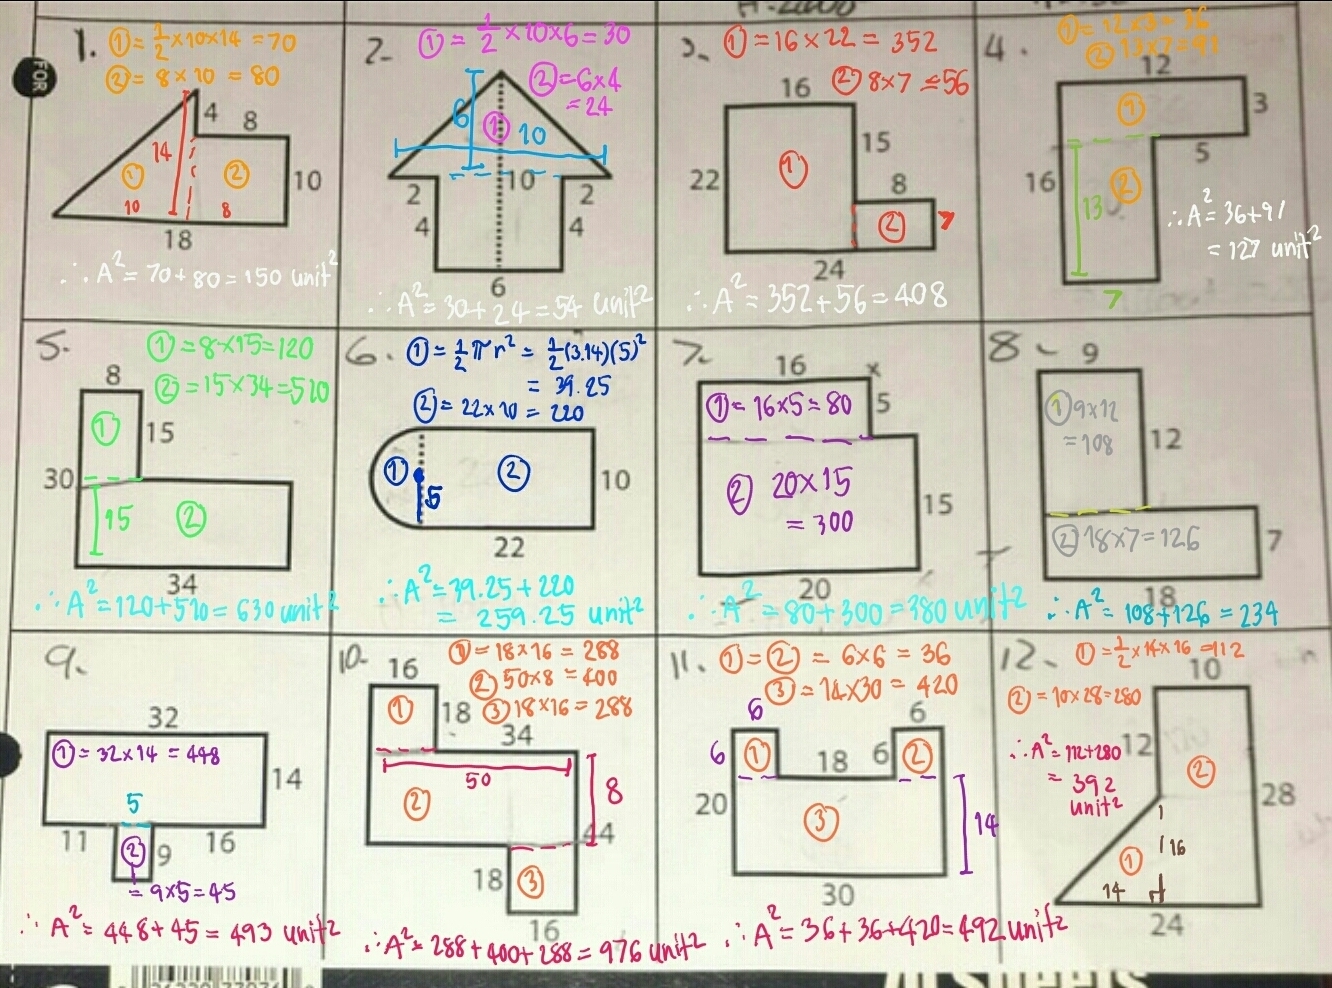 FOR
1.
① = 1/2 × 10 × 14 = 70
② = 8 × 10 = 80
4 8
14
① ② 10
10 8
18
∴ A² = 70 + 80 = 150 unit²
2-
① = 1/2 × 10 × 6 = 30
② = 6×4
= 24
6 ① 10
2 10 2
4 4
6
∴ A² = 30 + 24 = 54 unit²
3.
① = 16 × 22 = 352
② 8×7 = 56
16
15
22 ① 8
② 7
24
∴ A² = 352 + 56 = 408
4.
① = 12×3 = 36
② 13×7 = 91
12
① 3
5
16 13 ②
7
∴ A² = 36+91
= 127 unit²
5.
① = 8×15=120
② = 15×34 = 510
8
① 15
30
15 ②
34
∴ A² = 120 + 510 = 630 unit²
6.
① = 1/2 πr² = 1/2 (3.14)(5)²
= 39.25
② = 22 × 10 = 220
① ② 10
5
22
∴ A² = 39.25 + 220
= 259.25 unit²
7.
16 x
① = 16×5 = 80 5
② 20×15
= 300
15
20
∴ A² = 80 + 300 = 380 unit²
8-
9
① 9×12
= 108
12
② 18×7 = 126 7
18
∴ A² = 108+126 = 234
9.
32
① = 32×14 = 448
14
5
11 ② 9 16
= 9×5 = 45
∴ A² = 448 + 45 = 493 unit²
10-
① = 18×16 = 288
② 50×8 = 400
③ 18×16 = 288
16
① 18
34
50
② 8
44
18 ③
16
∴ A² = 288 + 400 + 288 = 976 unit²
11.
① = ② = 6×6 = 36
③ = 14×30 = 420
6 6
6 ① 18 6 ②
20
③ 14
30
∴ A² = 36 + 36 + 420 = 492 unit²
12-
① = 1/2 × 14 × 16 = 112
② = 10×28 = 280
10
∴ A² = 112+280
= 392
unit²
12
② 28
16
①
14
24